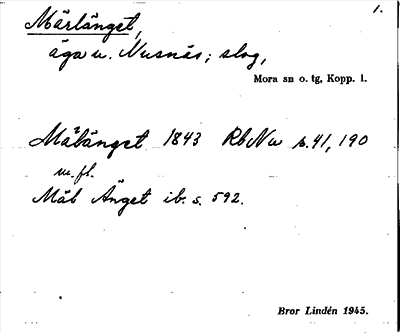 1.
Märlänget,
äga u. Nusnäs; slog,
Mora sn o. tg, Kopp. l.
Mäˡänget 1843 RbNu s. 41, 190
m. fl.
Mäl Änget ib. s. 592.
Bror Lindén 1945.